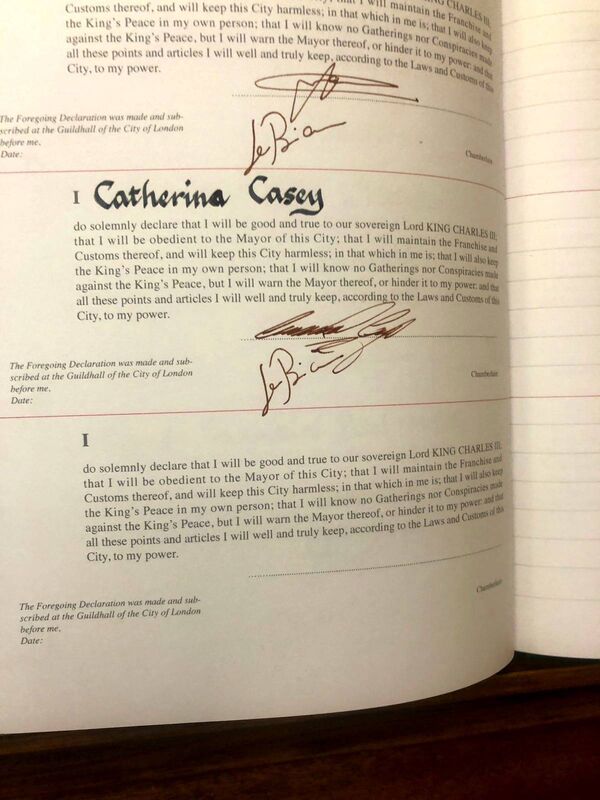 Customs thereof, and will keep this City harmless; in that which in me is; that I will maintain the Franchise
the King's Peace in my own person; that I will know no Gatherings nor Conspiracies made
against the King's Peace, but I will warn the Mayor thereof, or hinder it to my power: and that
all these points and articles I will well and truly keep, according to the Laws and Customs of this
City, to my power.
The Foregoing Declaration was made and sub-
scribed at the Guildhall of the City of London
before me.
Date:
Chamberlain
I Catherina Casey
do solemnly declare that I will be good and true to our sovereign Lord KING CHARLES III;
that I will be obedient to the Mayor of this City; that I will maintain the Franchise and
Customs thereof, and will keep this City harmless; in that which in me is; that I will also keep
the King's Peace in my own person; that I will know no Gatherings nor Conspiracies made
against the King's Peace, but I will warn the Mayor thereof, or hinder it to my power: and that
all these points and articles I will well and truly keep, according to the Laws and Customs of this
City, to my power.
The Foregoing Declaration was made and sub-
scribed at the Guildhall of the City of London
before me.
Date:
Chamberlain
I
do solemnly declare that I will be good and true to our sovereign Lord KING CHARLES III;
that I will be obedient to the Mayor of this City; that I will maintain the Franchise and
Customs thereof, and will keep this City harmless; in that which in me is; that I will also keep
the King's Peace in my own person; that I will know no Gatherings nor Conspiracies made
against the King's Peace, but I will warn the Mayor thereof, or hinder it to my power: and that
all these points and articles I will well and truly keep, according to the Laws and Customs of this
City, to my power.
The Foregoing Declaration was made and sub-
scribed at the Guildhall of the City of London
before me.
Date:
Chamberlain